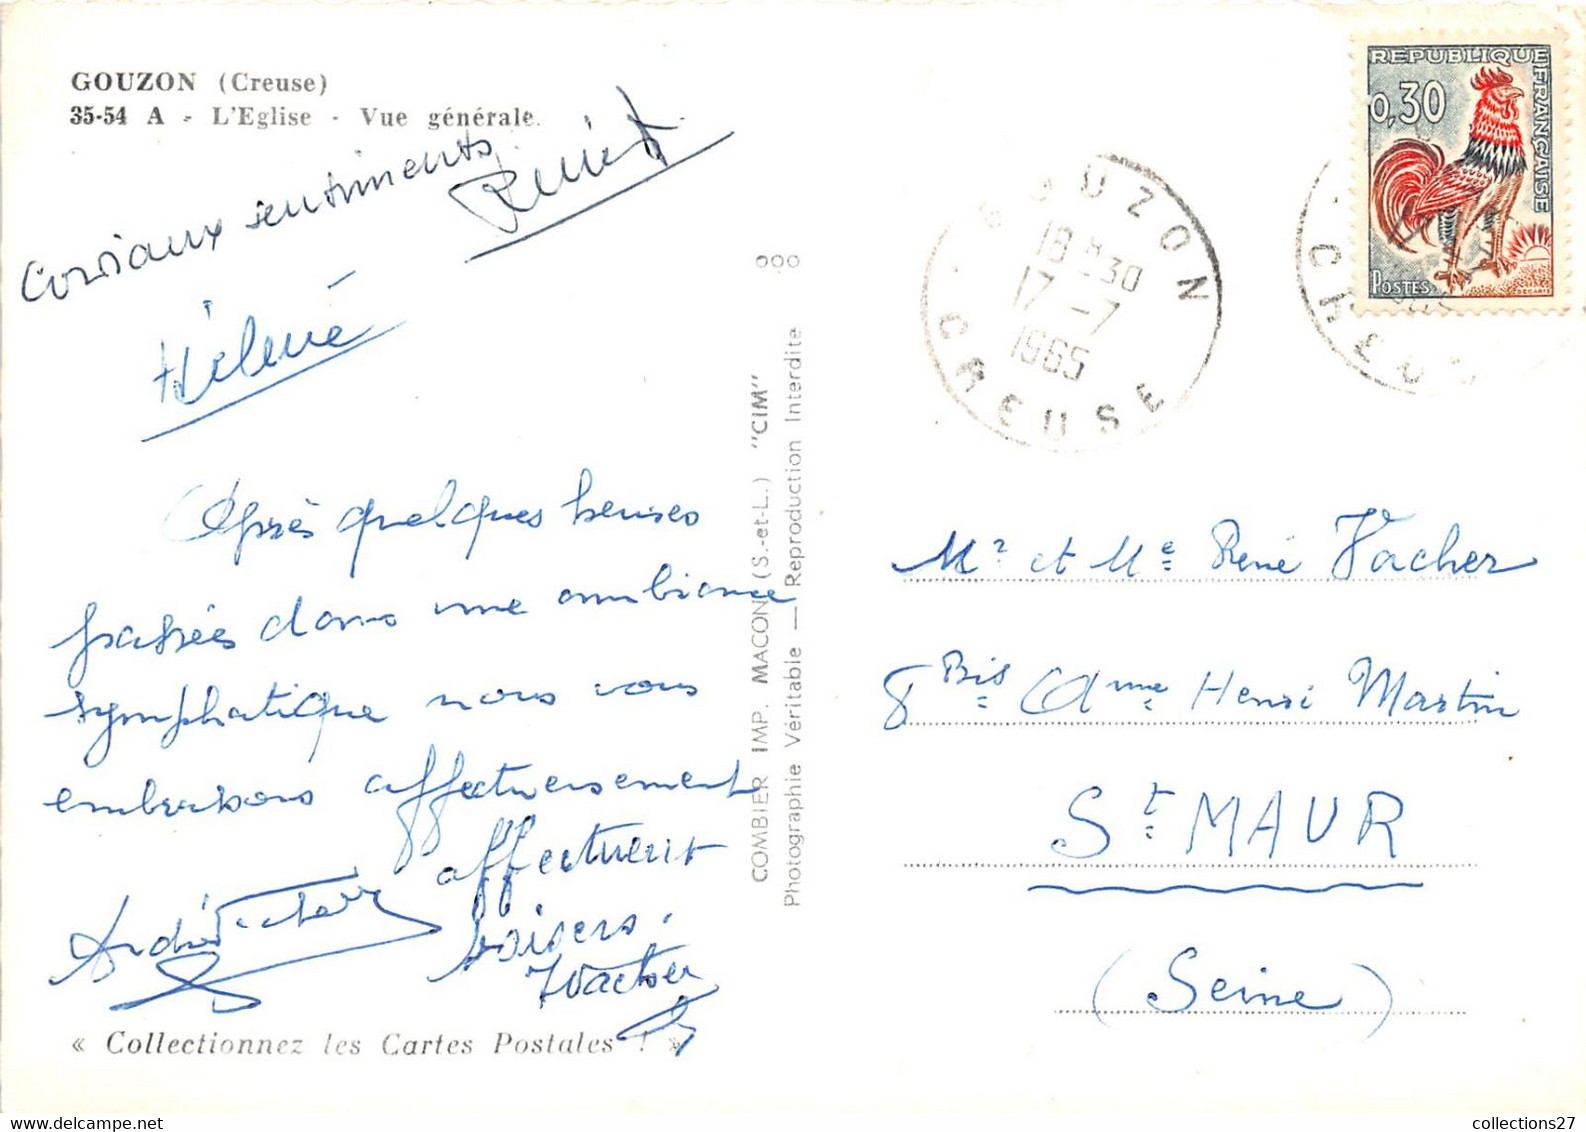 GOUZON (Creuse)
35-54 A - L'Eglise - Vue générale.
Cordiaux sentiments
Hélène
Après quelques heures
passées dans une ambiance
symphatique nous vous
embrassons affectueusement
affectueux
baisers.
André Vacher
YVacher
« Collectionnez les Cartes Postales ! »
COMBIER IMP. MACON (S.-et-L.) "CIM"
Photographie Véritable — Reproduction Interdite
GOUZON
18H30
17-7
1965
CREUSE
REPUBLIQUE FRANÇAISE
0,30
POSTES
CREUSE
Mr et Me René Vacher
8 Bis Avenue Henri Martin
St MAUR
(Seine)
collections27